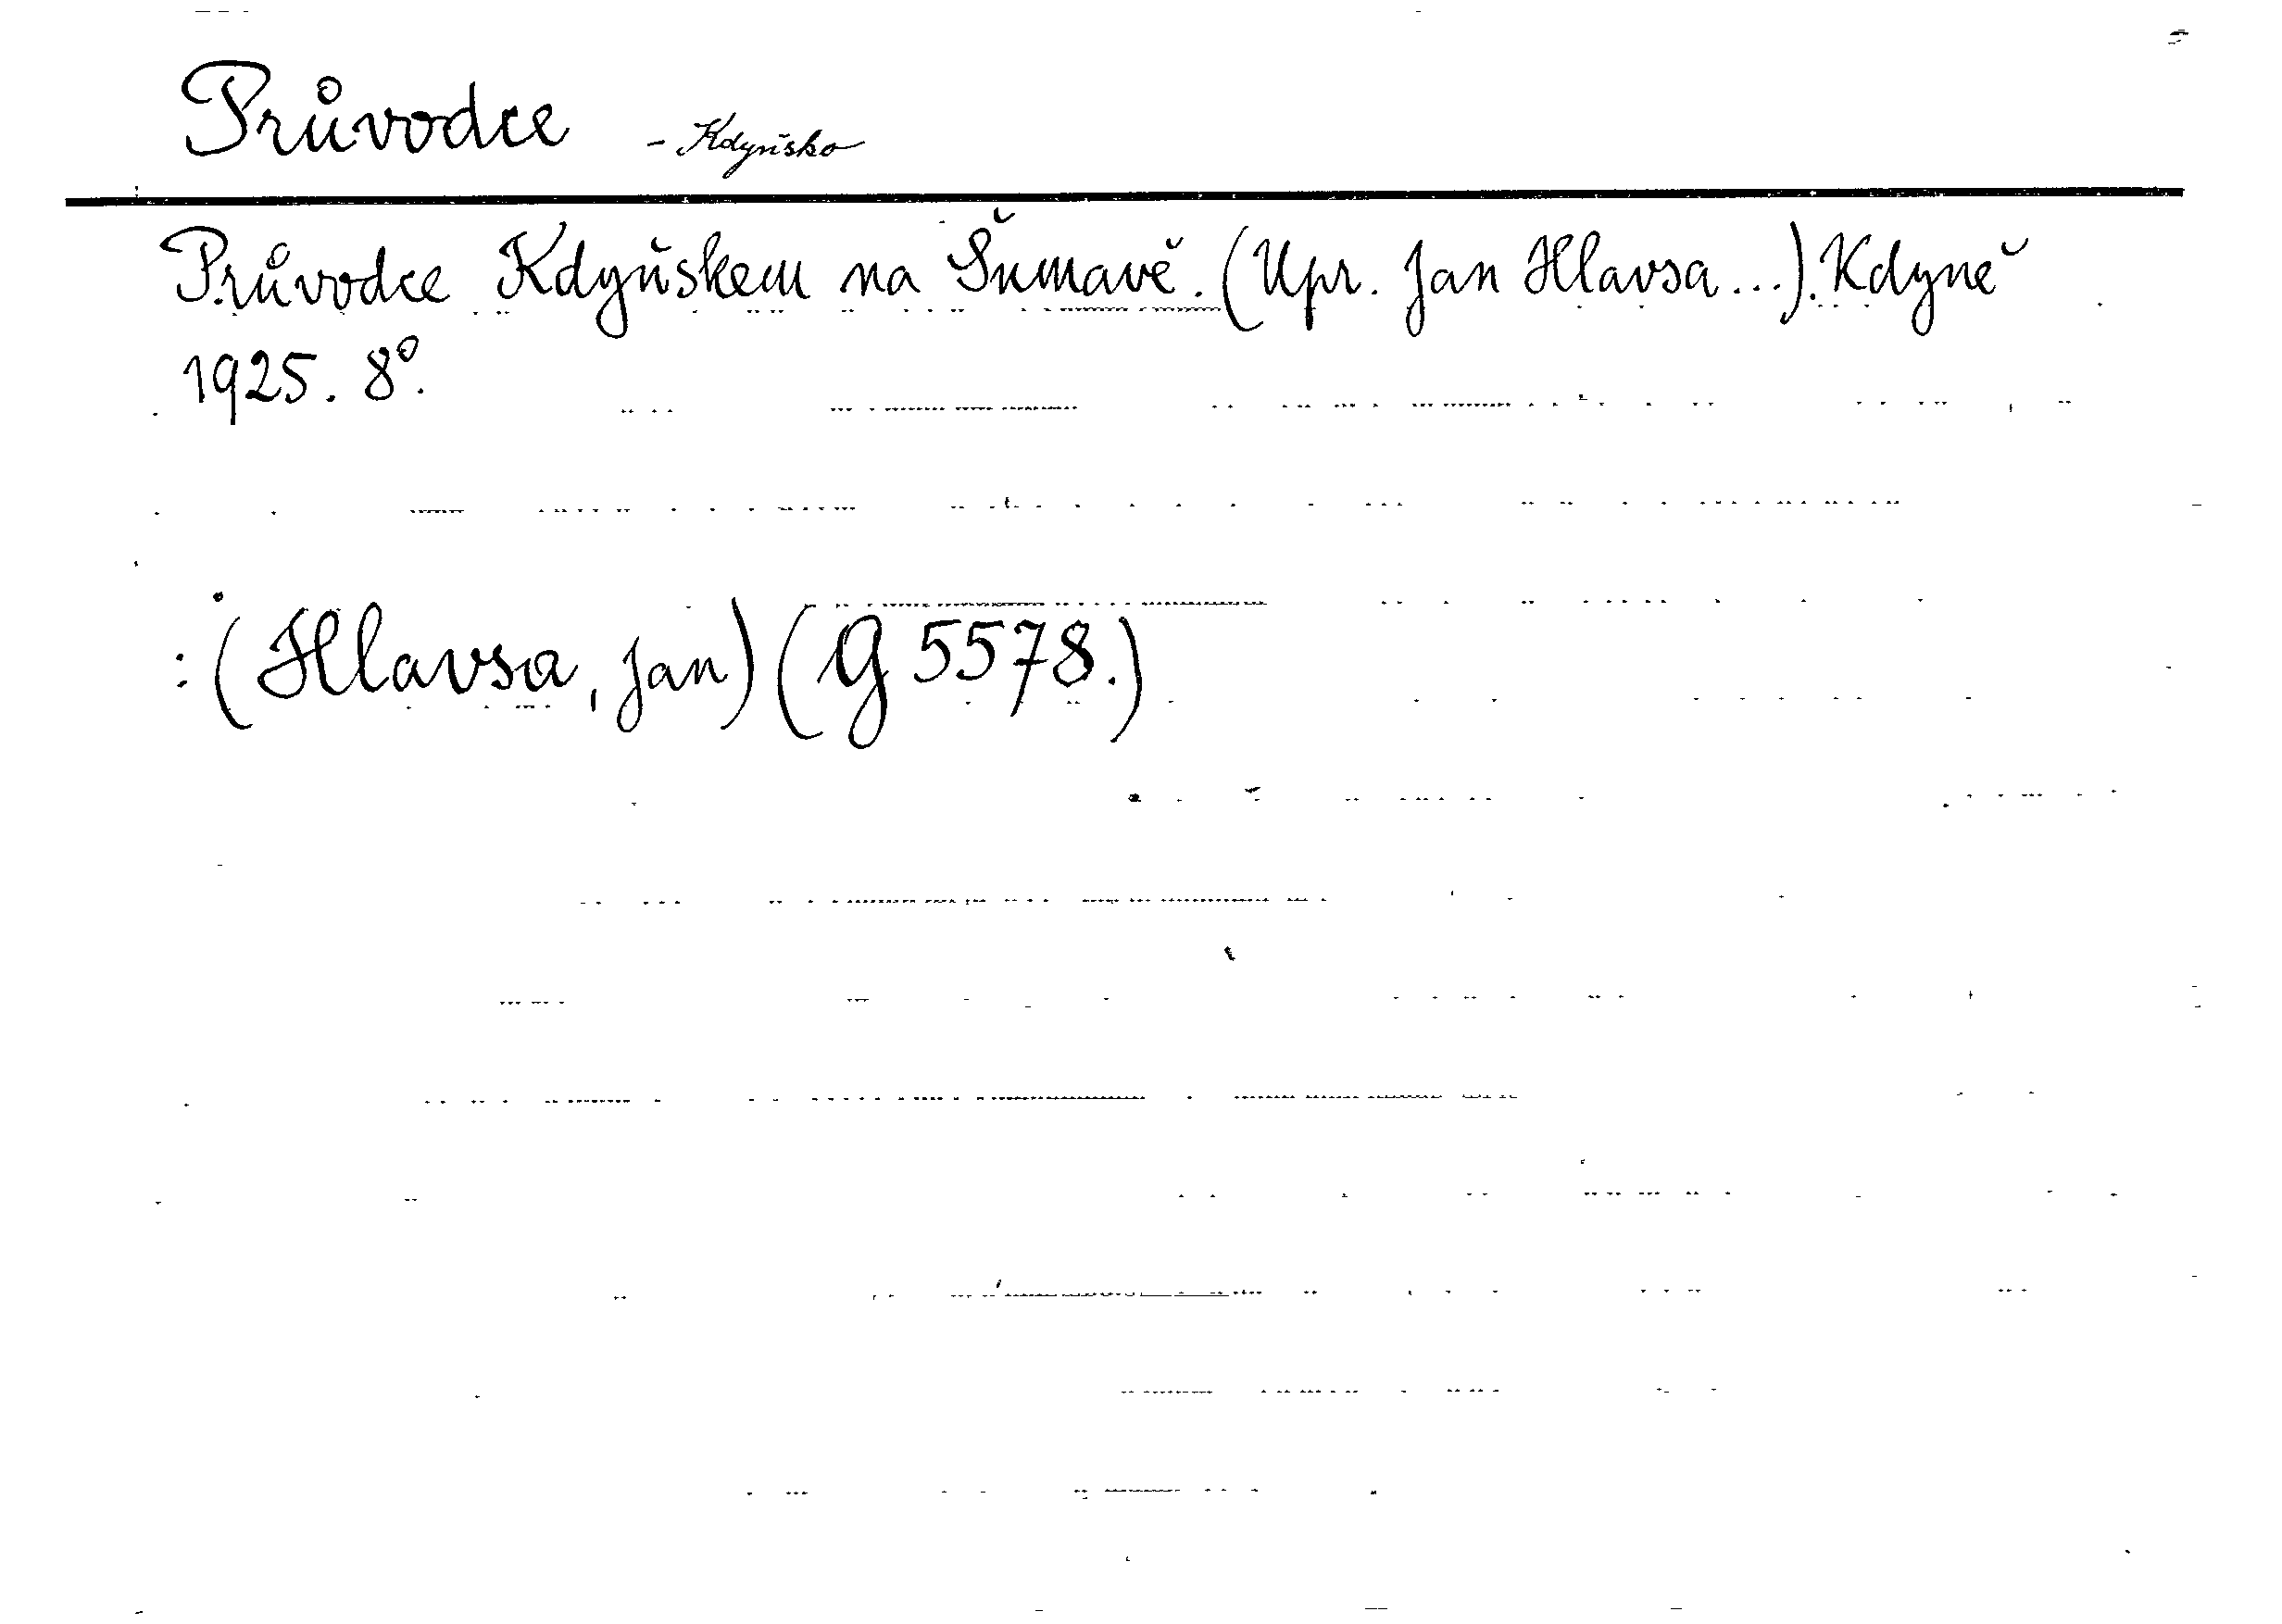 Průvodce - Kdyňsko
Průvodce Kdyňskem na Šumavě. (Upr. Jan Hlavsa...). Kdyně
1925. 8°.
:(Hlavsa, Jan) (G 5578.)